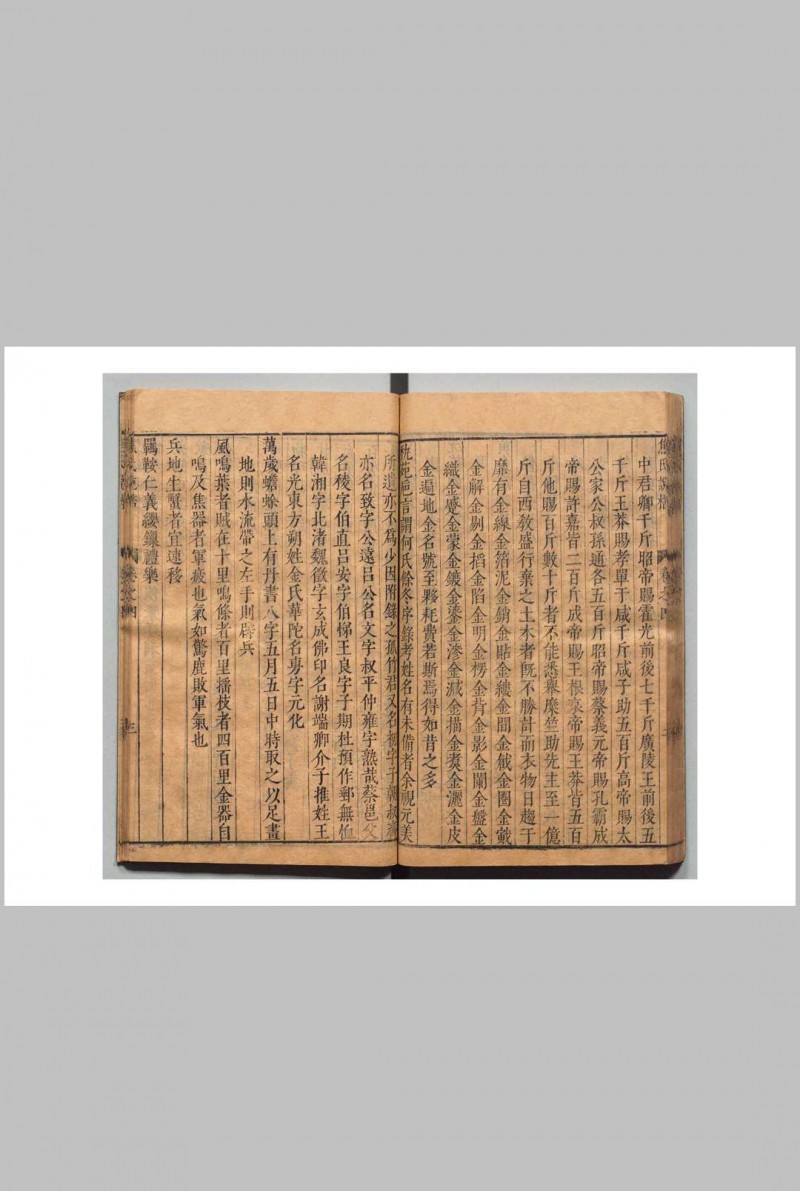 中君卿千斤昭帝賜霍光前後七千斤廣陵王前後五
千斤王莽賜孝單于咸千斤咸子助五百斤高帝賜太
公家令叔孫通各五百斤昭帝賜蔡義元帝賜孔霸成
帝賜許嘉皆二百斤成帝賜王根哀帝賜王莽皆五百
斤他賜百斤數十斤者不能悉舉糜竺助先主至一億
斤自西教盛行棄之土木者既不勝計而衣物日趨于
靡有金線金箔泥金銷金貼金縷金間金戧金圈金戴
金解金剔金搯金陷金明金楞金背金影金闌金盤金
織金蹙金蒙金鍍金鎏金滲金減金描金麩金灑金皮
金遍地金名號至夥耗費若斯焉得如昔之多
宛委巵言謂何氏餘冬序錄考姓名有未備者余視元美
所遺亦不為少因附錄之孤竹君又名初字子朝叔齊
亦名致字公遠吕公名文字叔平仲雍字熟哉蔡邕父
名稜字伯直吕安字伯悌王良字子期杜預作郵無恤
韓湘字北渚魏徵字玄成佛印名謝端卿介子推姓王
名光東方朔姓金氏華陀名旉字元化
萬歲蟾蜍頭上有丹書八字五月五日中時取之以足畫
地則水流帶之左手則辟兵
風鳴葉者賊在十里鳴條者百里搖枝者四百里金器自
鳴及焦器者軍疲也氣如驚鹿敗軍氣也
兵地生蟹者宜速移
羈鞍仁義纓鑣禮樂